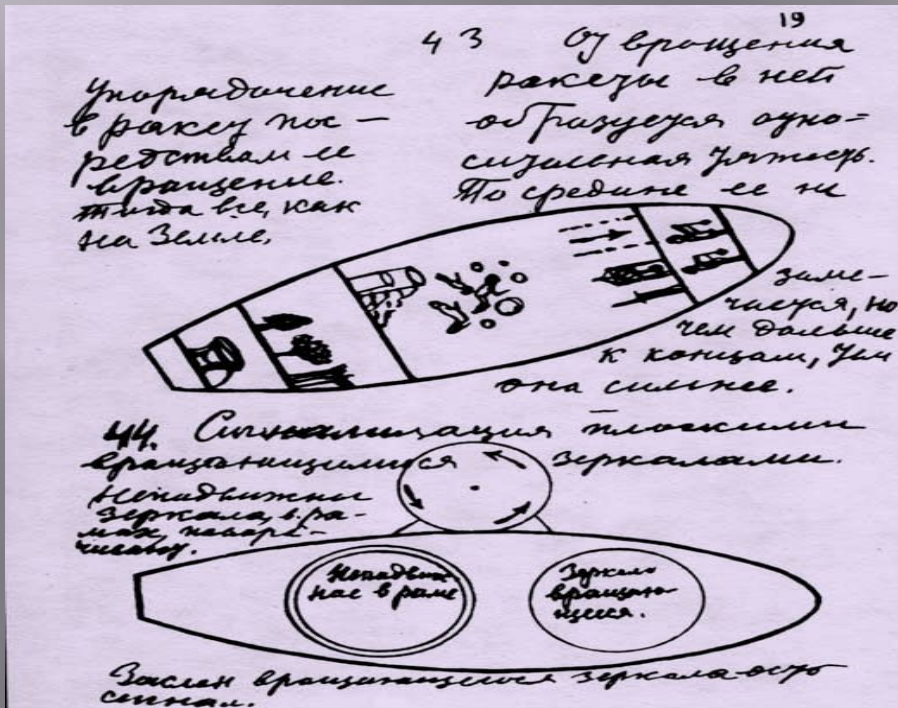 19
43
Упорядочение
в ракет пос-
редствам ее
вращение.
тогда все, как
на Земле.
От вращения
ракеты в ней
образуется отно-
сительная тяжесть.
По средине ее не
заме-
чается, но
чем дальше
к концам, тем
она сильнее.
44. Сигнализация плоскими
вращающимися зеркалами.
Неподвижны
зеркала, в ра-
мах,
Неподвиж-
ное в раме
Зеркало
вращаю-
щееся.
Заслон вращающегося зеркала есть
сигнал.